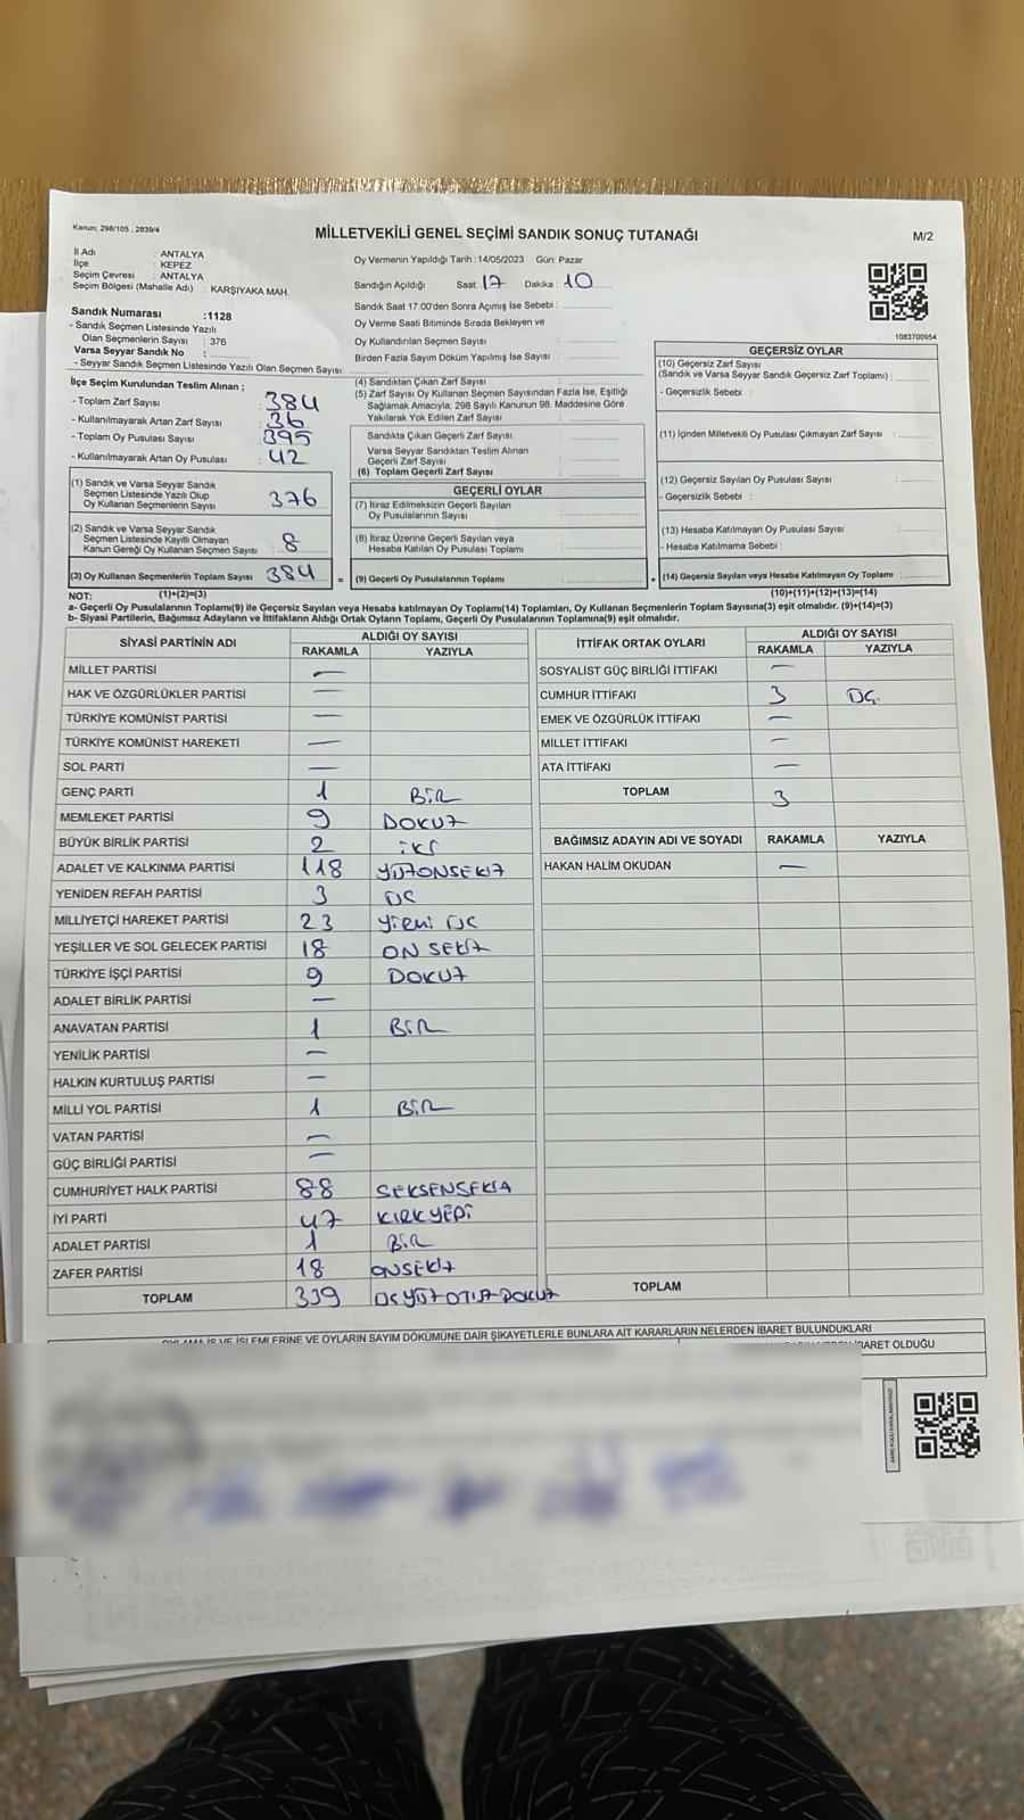 Kanun: 298/105 , 2839/4
MİLLETVEKİLİ GENEL SEÇİMİ SANDIK SONUÇ TUTANAĞI
M/2
İl Adı : ANTALYA
İlçe : KEPEZ
Seçim Çevresi : ANTALYA
Seçim Bölgesi (Mahalle Adı) : KARŞIYAKA MAH.
Sandık Numarası :1128
- Sandık Seçmen Listesinde Yazılı
Olan Seçmenlerin Sayısı : 376
Varsa Seyyar Sandık No :
- Seyyar Sandık Seçmen Listesinde Yazılı Olan Seçmen Sayısı :
İlçe Seçim Kurulundan Teslim Alınan ;
- Toplam Zarf Sayısı : 384
- Kullanılmayarak Artan Zarf Sayısı : 36
- Toplam Oy Pusulası Sayısı : 395
- Kullanılmayarak Artan Oy Pusulası : 42
(1) Sandık ve Varsa Seyyar Sandık
Seçmen Listesinde Yazılı Olup
Oy Kullanan Seçmenlerin Sayısı : 376
(2) Sandık ve Varsa Seyyar Sandık
Seçmen Listesinde Kayıtlı Olmayan
Kanun Gereği Oy Kullanan Seçmen Sayısı : 8
(3) Oy Kullanan Seçmenlerin Toplam Sayısı : 384 =
Oy Vermenin Yapıldığı Tarih : 14/05/2023 Gün: Pazar
Sandığın Açıldığı Saat: 17 Dakika : 10
Sandık Saat 17.00'den Sonra Açımış İse Sebebi :
Oy Verme Saati Bitiminde Sırada Bekleyen ve
Oy Kullandırılan Seçmen Sayısı :
Birden Fazla Sayım Döküm Yapılmış İse Sayısı :
(4) Sandıktan Çıkan Zarf Sayısı :
(5) Zarf Sayısı Oy Kullanan Seçmen Sayısından Fazla İse, Eşitliği
Sağlamak Amacıyla, 298 Sayılı Kanunun 98. Maddesine Göre
Yakılarak Yok Edilen Zarf Sayısı :
Sandıkta Çıkan Geçerli Zarf Sayısı :
Varsa Seyyar Sandıktan Teslim Alınan
Geçerli Zarf Sayısı :
(6) Toplam Geçerli Zarf Sayısı :
GEÇERLİ OYLAR
(7) İtiraz Edilmeksizin Geçerli Sayılan
Oy Pusulalarının Sayısı :
(8) İtiraz Üzerine Geçerli Sayılan veya
Hesaba Katılan Oy Pusulası Toplamı :
(9) Geçerli Oy Pusulalarının Toplamı : +
1083700954
GEÇERSİZ OYLAR
(10) Geçersiz Zarf Sayısı
(Sandık ve Varsa Seyyar Sandık Geçersiz Zarf Toplamı) :
- Geçersizlik Sebebi :
(11) İçinden Milletvekili Oy Pusulası Çıkmayan Zarf Sayısı :
(12) Geçersiz Sayılan Oy Pusulası Sayısı :
- Geçersizlik Sebebi :
(13) Hesaba Katılmayan Oy Pusulası Sayısı :
- Hesaba Katılmama Sebebi :
(14) Geçersiz Sayılan veya Hesaba Katılmayan Oy Toplamı :
NOT: (1)+(2)=(3) (10)+(11)+(12)+(13)=(14)
a- Geçerli Oy Pusulalarının Toplamı(9) ile Geçersiz Sayılan veya Hesaba katılmayan Oy Toplamı(14) Toplamları, Oy Kullanan Seçmenlerin Toplam Sayısına(3) eşit olmalıdır. (9)+(14)=(3)
b- Siyasi Partilerin, Bağımsız Adayların ve İttifakların Aldığı Ortak Oyların Toplamı, Geçerli Oy Pusulalarının Toplamına(9) eşit olmalıdır.
SİYASİ PARTİNİN ADI ALDIĞI OY SAYISI
RAKAMLA YAZIYLA
MİLLET PARTİSİ —
HAK VE ÖZGÜRLÜKLER PARTİSİ —
TÜRKİYE KOMÜNİST PARTİSİ —
TÜRKİYE KOMÜNİST HAREKETİ —
SOL PARTİ —
GENÇ PARTİ 1 BİR
MEMLEKET PARTİSİ 9 DOKUZ
BÜYÜK BİRLİK PARTİSİ 2 iKİ
ADALET VE KALKINMA PARTİSİ 118 YÜZONSEKİZ
YENİDEN REFAH PARTİSİ 3 ÜÇ
MİLLİYETÇİ HAREKET PARTİSİ 23 yirmi ÜÇ
YEŞİLLER VE SOL GELECEK PARTİSİ 18 ON SEKİZ
TÜRKİYE İŞÇİ PARTİSİ 9 DOKUZ
ADALET BİRLİK PARTİSİ —
ANAVATAN PARTİSİ 1 BİR
YENİLİK PARTİSİ —
HALKIN KURTULUŞ PARTİSİ —
MİLLİ YOL PARTİSİ 1 BİR
VATAN PARTİSİ —
GÜÇ BİRLİĞİ PARTİSİ —
CUMHURİYET HALK PARTİSİ 88 SEKSENSEKİZ
İYİ PARTİ 47 KIRKYEDİ
ADALET PARTİSİ 1 BİR
ZAFER PARTİSİ 18 ONSEKİZ
TOPLAM 339 ÜÇYÜZOTUZDOKUZ
İTTİFAK ORTAK OYLARI ALDIĞI OY SAYISI
RAKAMLA YAZIYLA
SOSYALİST GÜÇ BİRLİĞİ İTTİFAKI —
CUMHUR İTTİFAKI 3 ÜÇ
EMEK VE ÖZGÜRLÜK İTTİFAKI —
MİLLET İTTİFAKI —
ATA İTTİFAKI —
TOPLAM 3
BAĞIMSIZ ADAYIN ADI VE SOYADI RAKAMLA YAZIYLA
HAKAN HALİM OKUDAN —
TOPLAM
İŞLEMLERİNE VE OYLARIN SAYIM DÖKÜMÜNE DAİR ŞİKAYETLERLE BUNLARA AİT KARARLARIN NELERDEN İBARET BULUNDUKLARI
İBARET OLDUĞU